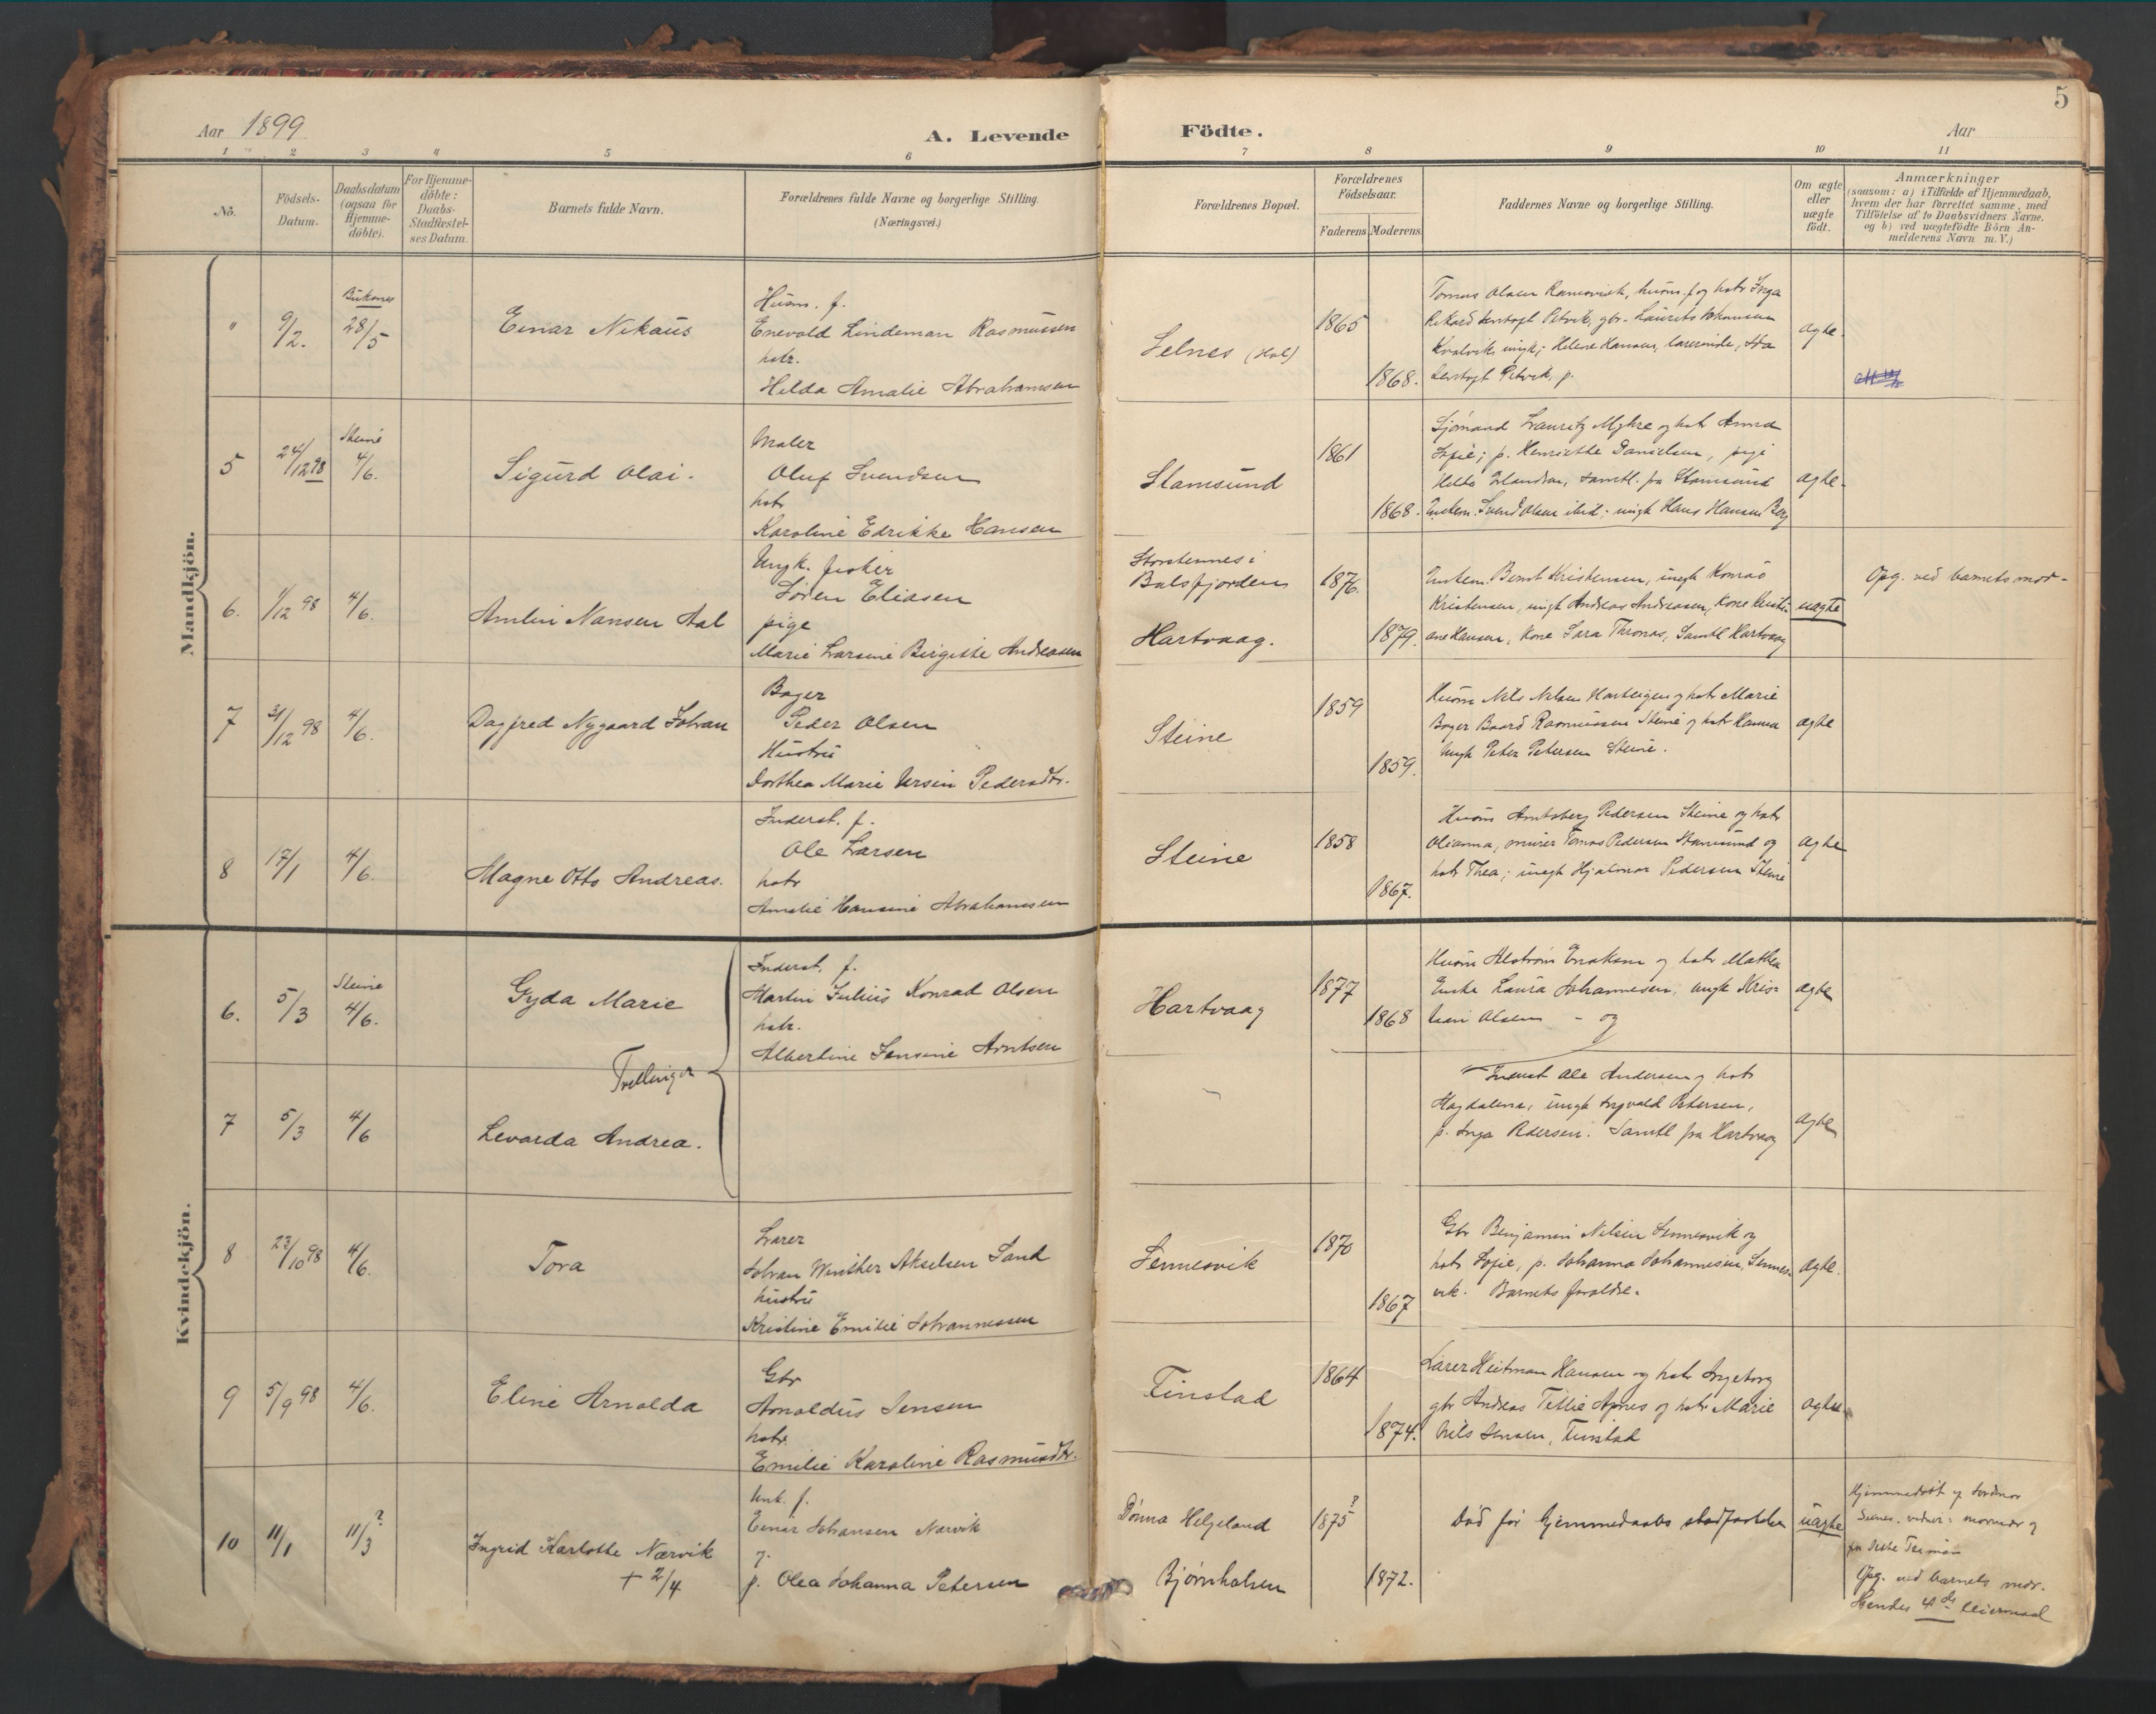 5
Aar 1899
A. Levende Födte.
Aar
1 2 3 4 5 6 7 8 9 10 11
No.
Födsels-Datum.
Daabsdatum (ogsaa for Hjemme-döbte).
For Hjemme-döbte: Daabs-Stadfæstel-ses Datum.
Barnets fulde Navn.
Forældrenes fulde Navne og borgerlige Stilling.
(Næringsvei.)
Forældrenes Bopæl.
Forældrenes Födselsaar.
Faderens. Moderens.
Faddernes Navne og borgerlige Stilling.
Om ægte eller uægte födt.
Anmærkninger
(saasom: a) i Tilfælde af Hjemmedaab,
hvem der har forrettet samme, med
Tilföielse af to Daabsvidners Navne.
og b) ved uægtefödte Börn An-
melderens Navn m. V.)
Mandkjön.
" 9/2. Buksnes 28/5
Einar Nikaüs
Husm. f.
Enevold Lindeman Rasmussen
hstr.
Hilda Amalie Abrahamsen
Selnes (Hol)
1865
1868.
Tomas Olsen Ramsvik, husm. f og hstr Inga
Rikard Petvik, gbr. Laurits Johansen
Kvalvik ungk; Helene Hansen, lærerinde,
Petvik, p.
ægte.
5 24/12 98 Steine 4/6.
Sigurd Olai.
Maler
Oluf Svendsen
hstr
Karoline Edrikke Hansen
Stamsund
1861
1868.
Sjømand Lauritz Myhre og hstr Anna
Sofie; p. Henriette Danielsen, pige
Hilda Erlandsen, samtl. fra Stamsund
Enkem. Svend Olsen ibid; ungk Hans Hansen Berg
ægte.
6. 1/12 98 4/6.
Amlin Nansen Aal
Ungk. fisker
Søren Eliasen
pige
Marie Larsine Birgitte Andreasen
Storstennes i
Balsfjorden
Hartvaag.
1876.
1879.
Enkem. Bernt Kristensen, ungk Konrad
Kristensen, ungk Andreas Andreasen, Kone Kristi-
ane Hansen, Kone Sara Thronas, Samtl Hartvaag
uægte
Opg. ved barnets mor-
7 31/12 98 4/6.
Dagfred Nygaard Johan
Bager
Peder Olsen
Hustru
Dorthea Marie Ursin Pedersdtr.
Steine
1859
1859.
Husm Nils Nilsen og hstr Marie
Bager Baard Rasmussen Steine og hstr Hanna
Ungk Peter Petersen Steine.
ægte
8 17/1 4/6.
Magne Otto Andreas.
Inderst. f.
Ole Larsen
hstr
Amalie Hansine Abrahamsen
Steine
1858
1867.
Husm Amtsberg Pedersen Steine og hstr
Olianna, murer Tomas Pedersen Stamsund og
hstr Thea; ungk Hjalmar Pedersen Steine
ægte
Kvindekjön.
6. 5/3 Steine 4/6.
Gyda Marie
Tvillinger
Inderst. f.
Martin Julius Konrad Olsen
hstr.
Albertine Jensine Arntsen
Hartvaag
1877
1868
Husm Alstrøm og hstr Mathea
Enke Laura Johannesen; ungk Kris-
tian Olsen - og
ægte
7 5/3 4/6
Levarda Andrea.
Inderst Ole Andersen og hstr
Magdalena, ungk Ingvald Petersen,
p. Inga Pedersen. Samtl fra Hartvaag
ægte
8 23/10 98 4/6.
Tora
Lærer
Johan Winther Akselsen Sand
hustru
Kristine Emilie Johannessen
Sennesvik
1870
1867
Gbr Benjamin Nilsen Sennesvik og
hstr Sofie, p. Johanna Johannesen, Sennes-
vik. Barnets forældre.
ægte.
9 5/9 98 4/6.
Eline Arnolda
Gbr
Arnoldus Jensen
hstr.
Emilie Karoline Rasmusdtr.
Finstad
1864
1874.
Lærer Heitman Hansen og hstr Ingeborg
gbr Andreas Tellie Apnes og hstr Marie
Nils Jensen, Finstad
ægte
10 11/1 11/3 ?
Ingrid Karlotte Nærvik
+ 2/4
Unk. f.
Einar Johansen Nærvik
og
p. Olea Johanna Petersen
Dønna Helgeland
Bjørnhalsen
1875 ?
1872.
Død før hjemmedaabs stadfæstelse
uægte
Hjemmedøbt af Jordmor
vidner: mormor og
Opg. ved barnets mor.
Hendes 4de leiermaal